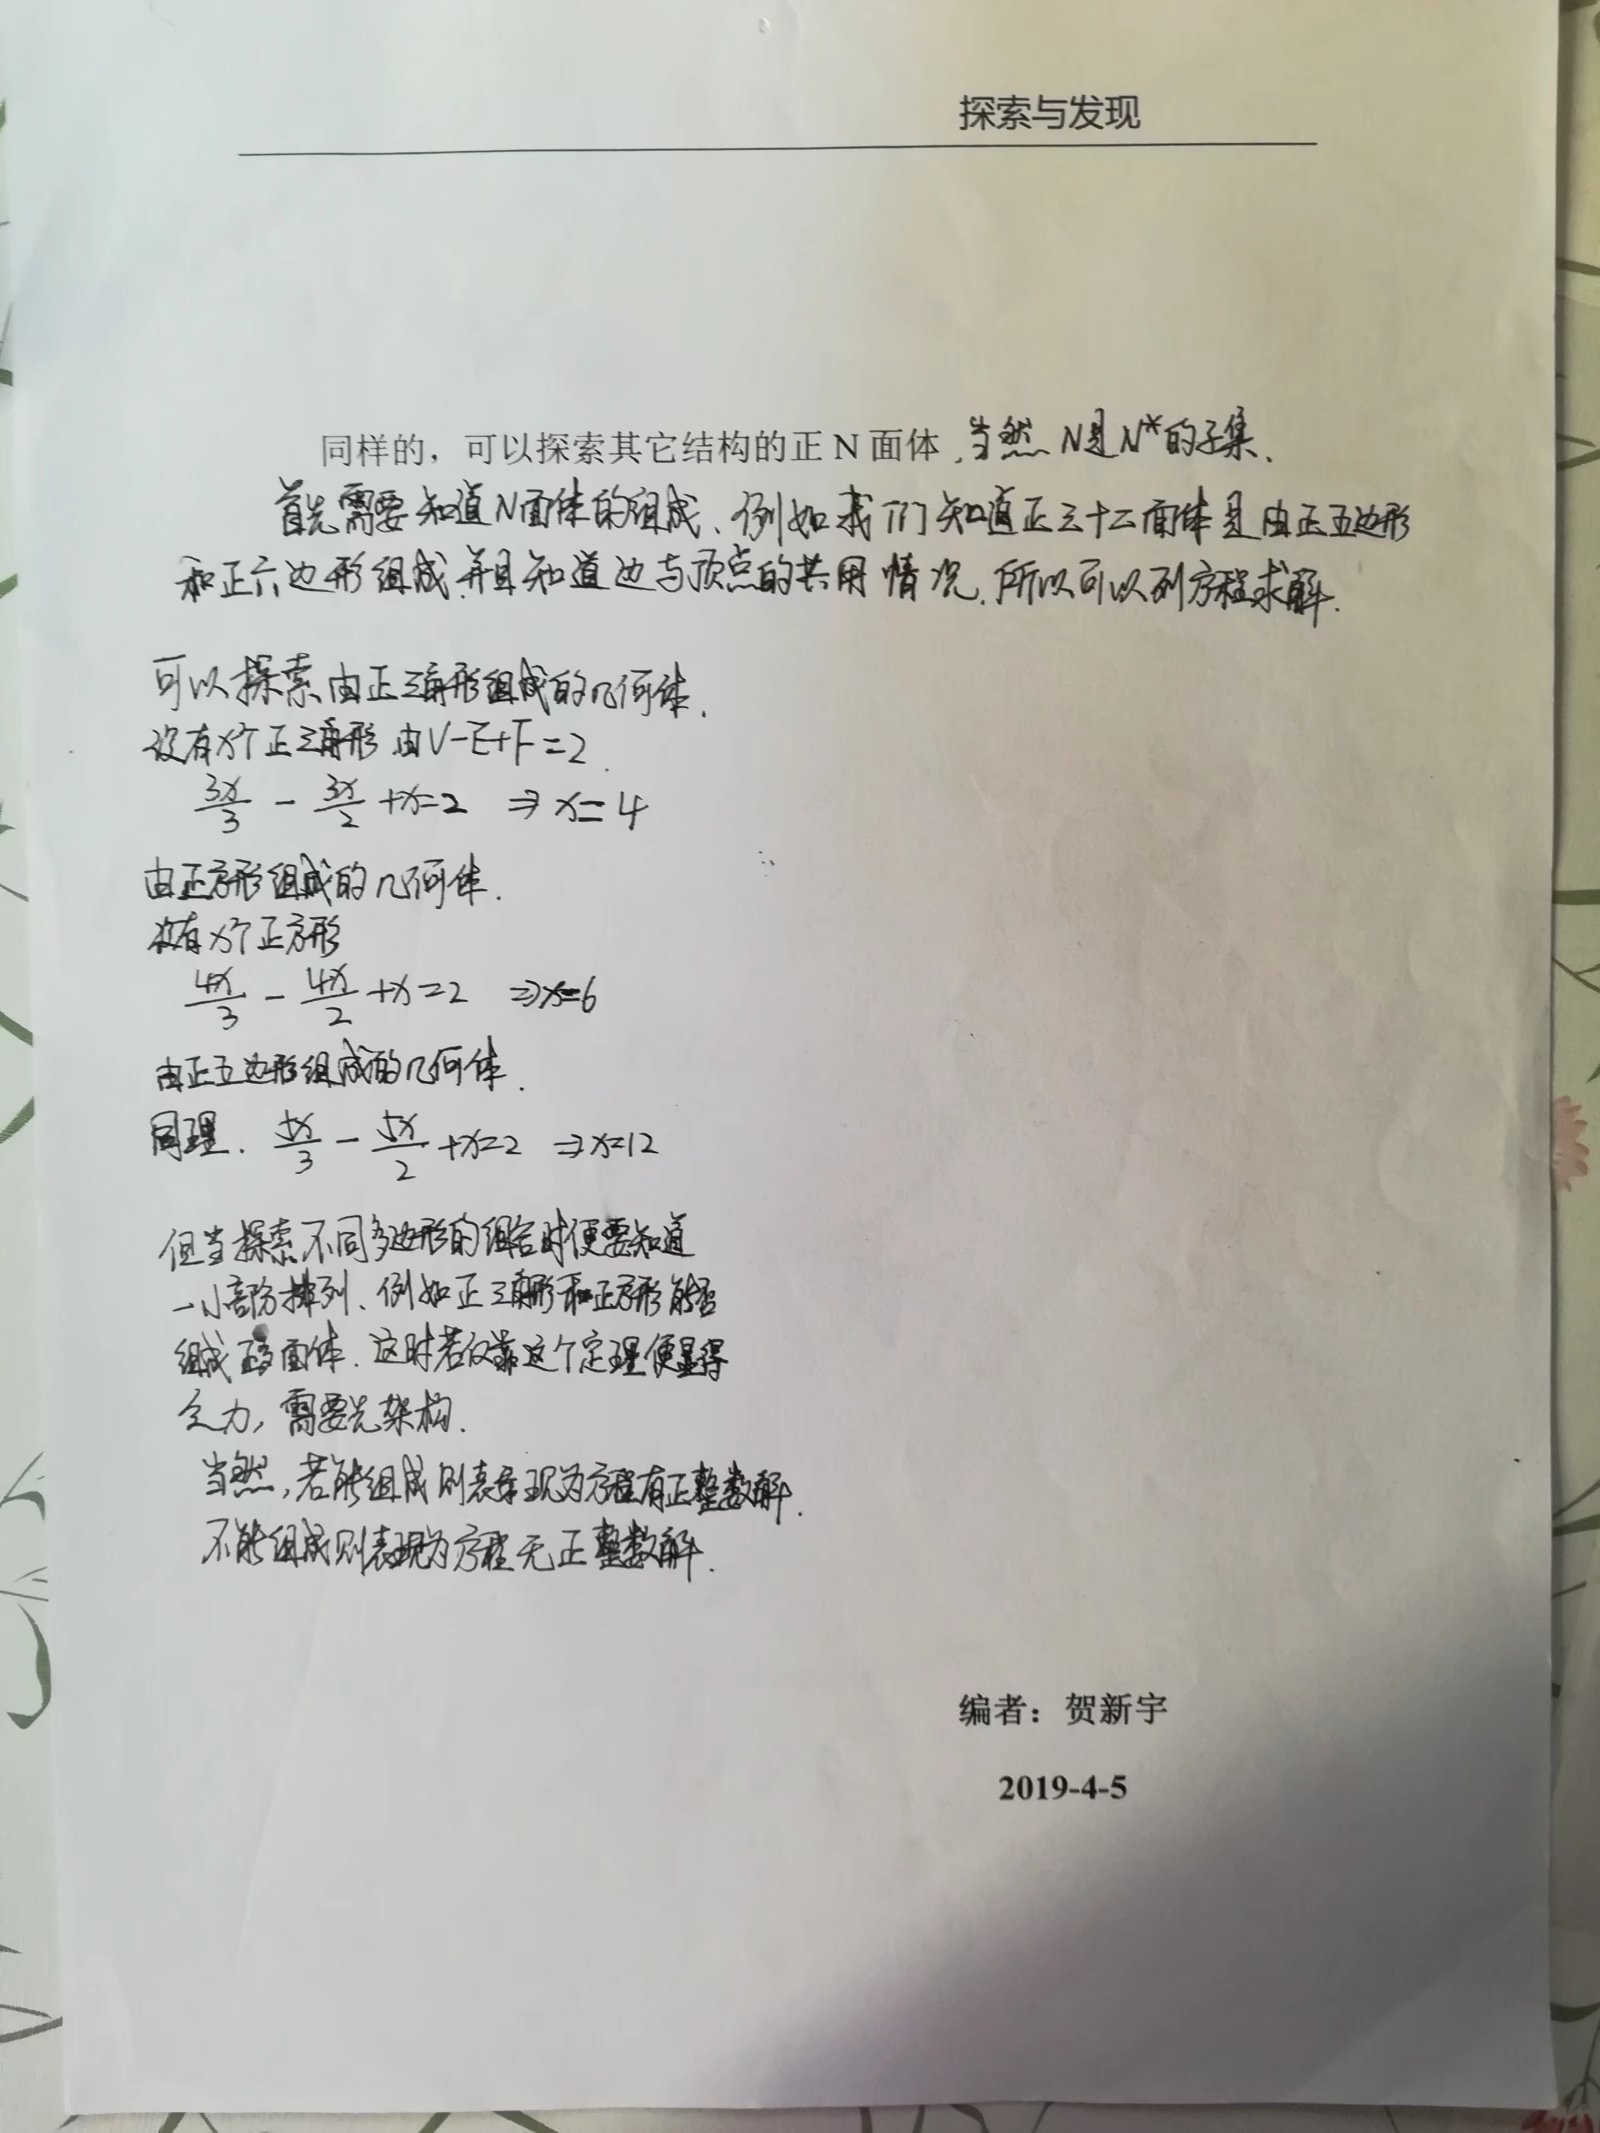 探索与发现
同样的，可以探索其它结构的正N面体，当然N是N*的子集.
首先需要知道N面体的组成、例如我们知道正三十二面体是由正五边形
和正六边形组成.并且知道边与顶点的共用情况.所以可以列方程求解.
可以探索由正三角形组成的几何体.
设有x个正三角形 由V-E+F=2.
3x/3 - 3x/2 +x=2 ⇒ x=4
由正方形组成的几何体.
设有x个正方形
4x/3 - 4x/2 +x=2 ⇒x=6
由正五边形组成的几何体.
同理. 5x/3 - 5x/2 +x=2 ⇒x=12
但当探索不同多边形的组合时便要知道
一小部分排列、例如正三角形和正方形能否
组成正多面体.这时若仅靠这个定理便显得
乏力，需要先架构.
当然，若能组成则表现为方程有正整数解.
不能组成则表现为方程无正整数解.
编者：贺新宇
2019-4-5